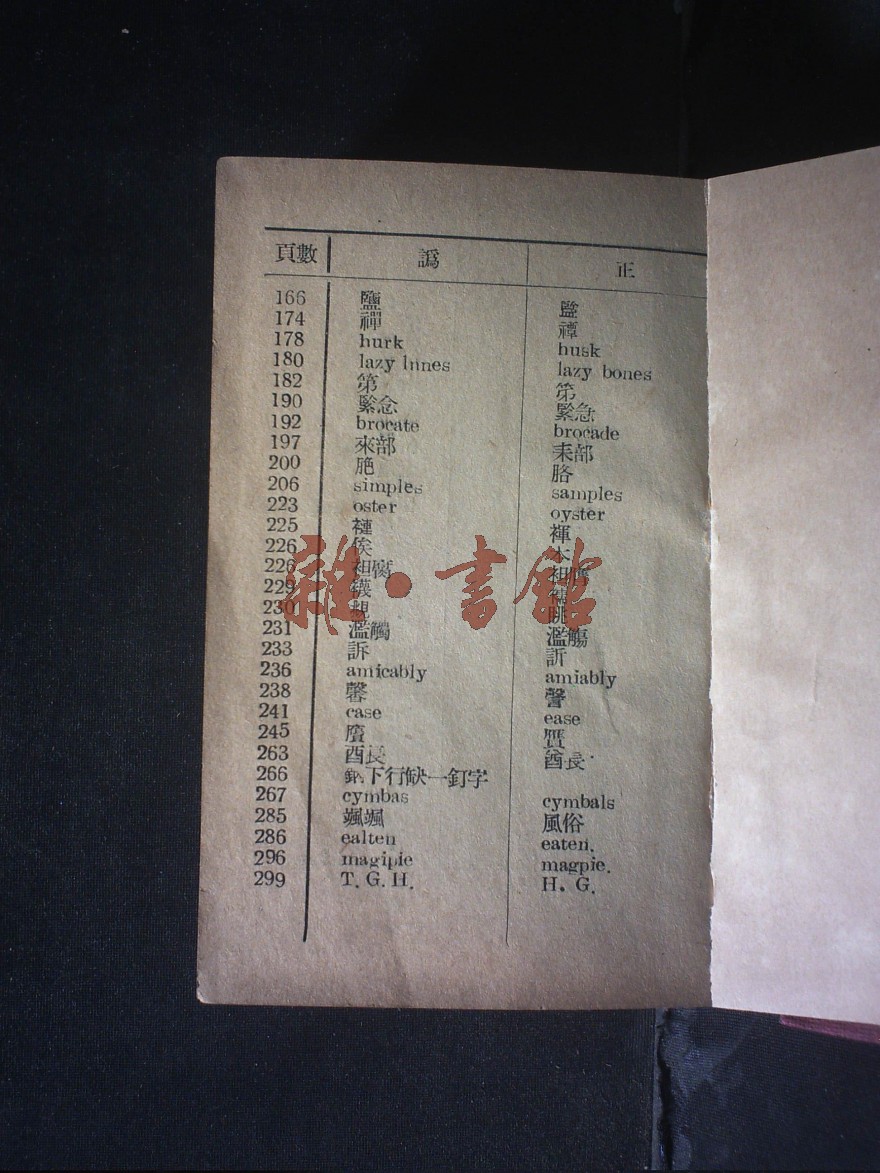 頁數 譌 正
166 鹽 監
174 禪 禫
178 hurk husk
180 lazy lnnes lazy bones
182 第 笫
190 緊念 緊急
192 brocate brocade
197 來部 耒部
200 胣 胳
206 simples samples
223 oster oyster
225 褳 褌
226 俟
226 袒腐
229
230
231 濫觸 濫觴
233 訴 訢
236 amicably amiably
238 馨 謦
241 case ease
245 贗
263 酉長 酋長
266 下行缺一釘字
267 cymbas cymbals
285 颯颯 風俗
286 ealten eaten.
296 magipie magpie.
299 T. G. H. H. G.
雜·書館